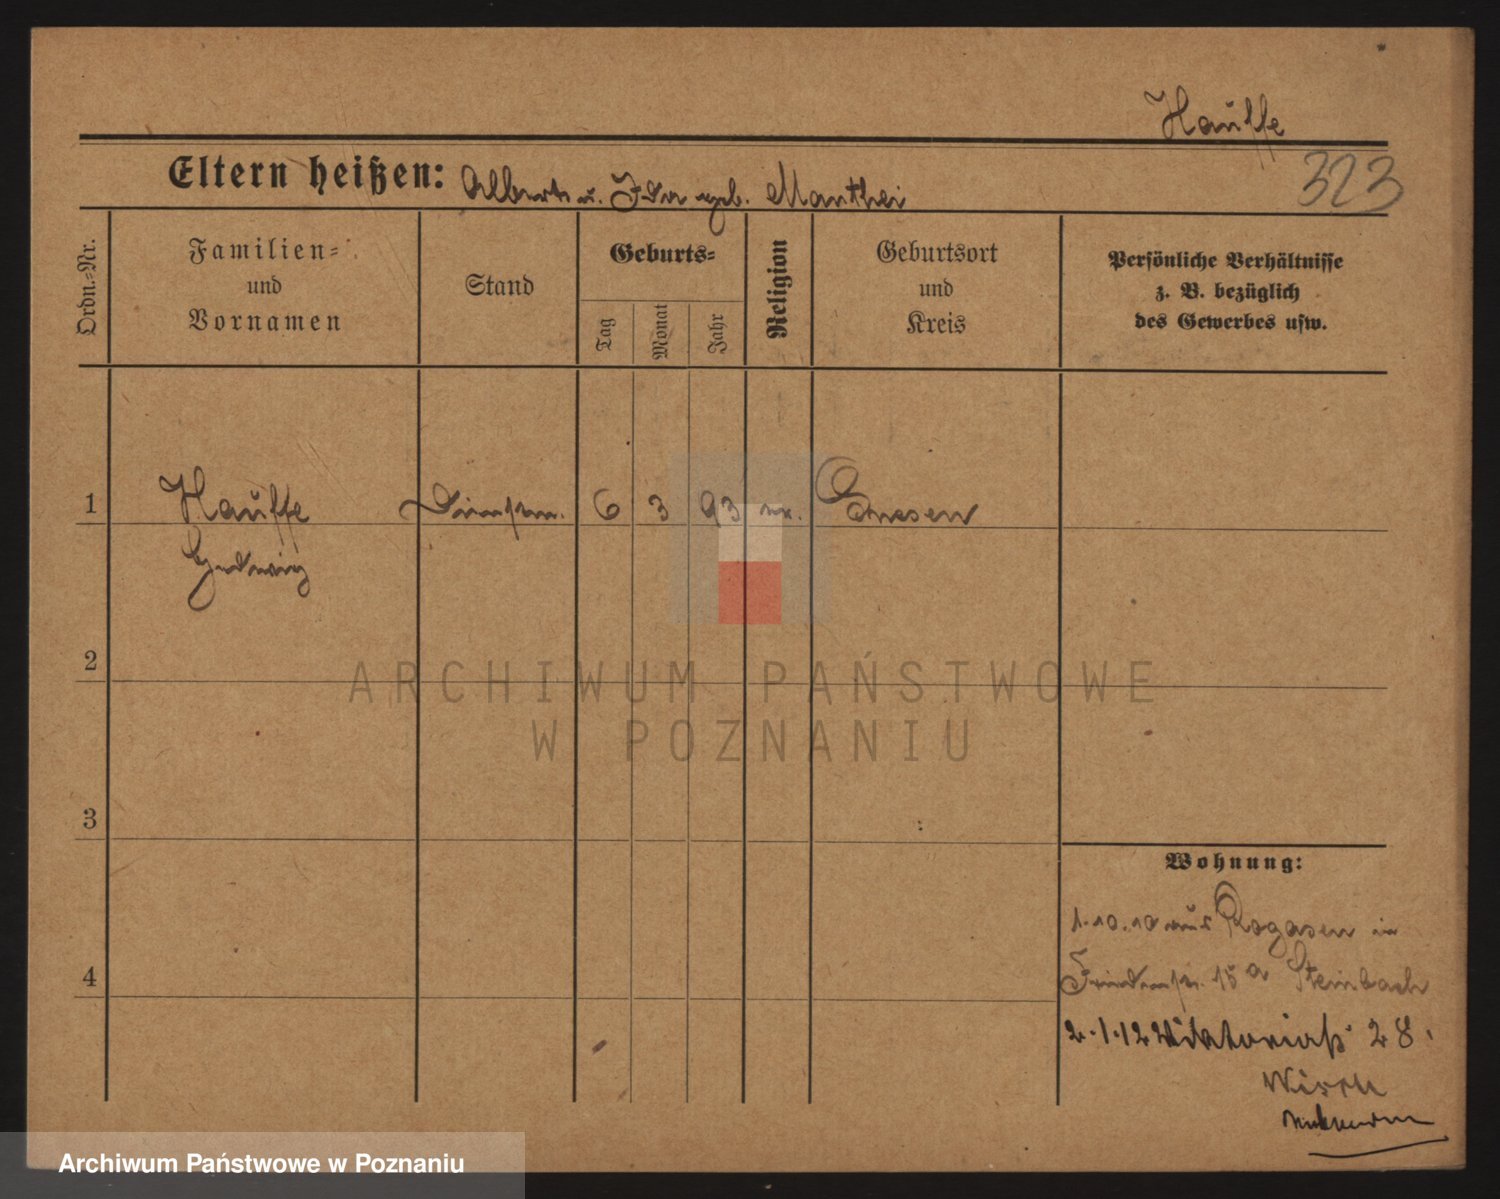 Hauffe
323
Eltern heißen: Albert u. Ida geb. Manthei
Ordn.-Nr.
Familien-
und
Vornamen
Stand
Geburts-
Tag
Monat
Jahr
Religion
Geburtsort
und
Kreis
Persönliche Verhältnisse
z. B. bezüglich
des Gewerbes usw.
1 Hauffe 6 3 93 Gnesen
2
3
4
ARCHIWUM PAŃSTWOWE
W POZNANIU
Wohnung:
1.10.10 aus Rogasen in
15a Steinbach
2.1.12 Viktoriastr 28.
Archiwum Państwowe w Poznaniu